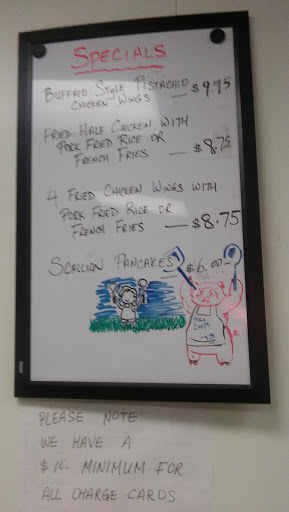 SPECIALS
BUFFALO STYLE PISTACHIO
CHICKEN WINGS — $9.95
FRIED HALF CHICKEN WITH
PORK FRIED RICE OR
FRENCH FRIES — $8.75
4 FRIED CHICKEN WINGS WITH
PORK FRIED RICE OR
FRENCH FRIES — $8.75
SCALLION PANCAKES $6.00
PLEASE NOTE
WE HAVE A
$10. MINIMUM FOR
ALL CHARGE CARDS